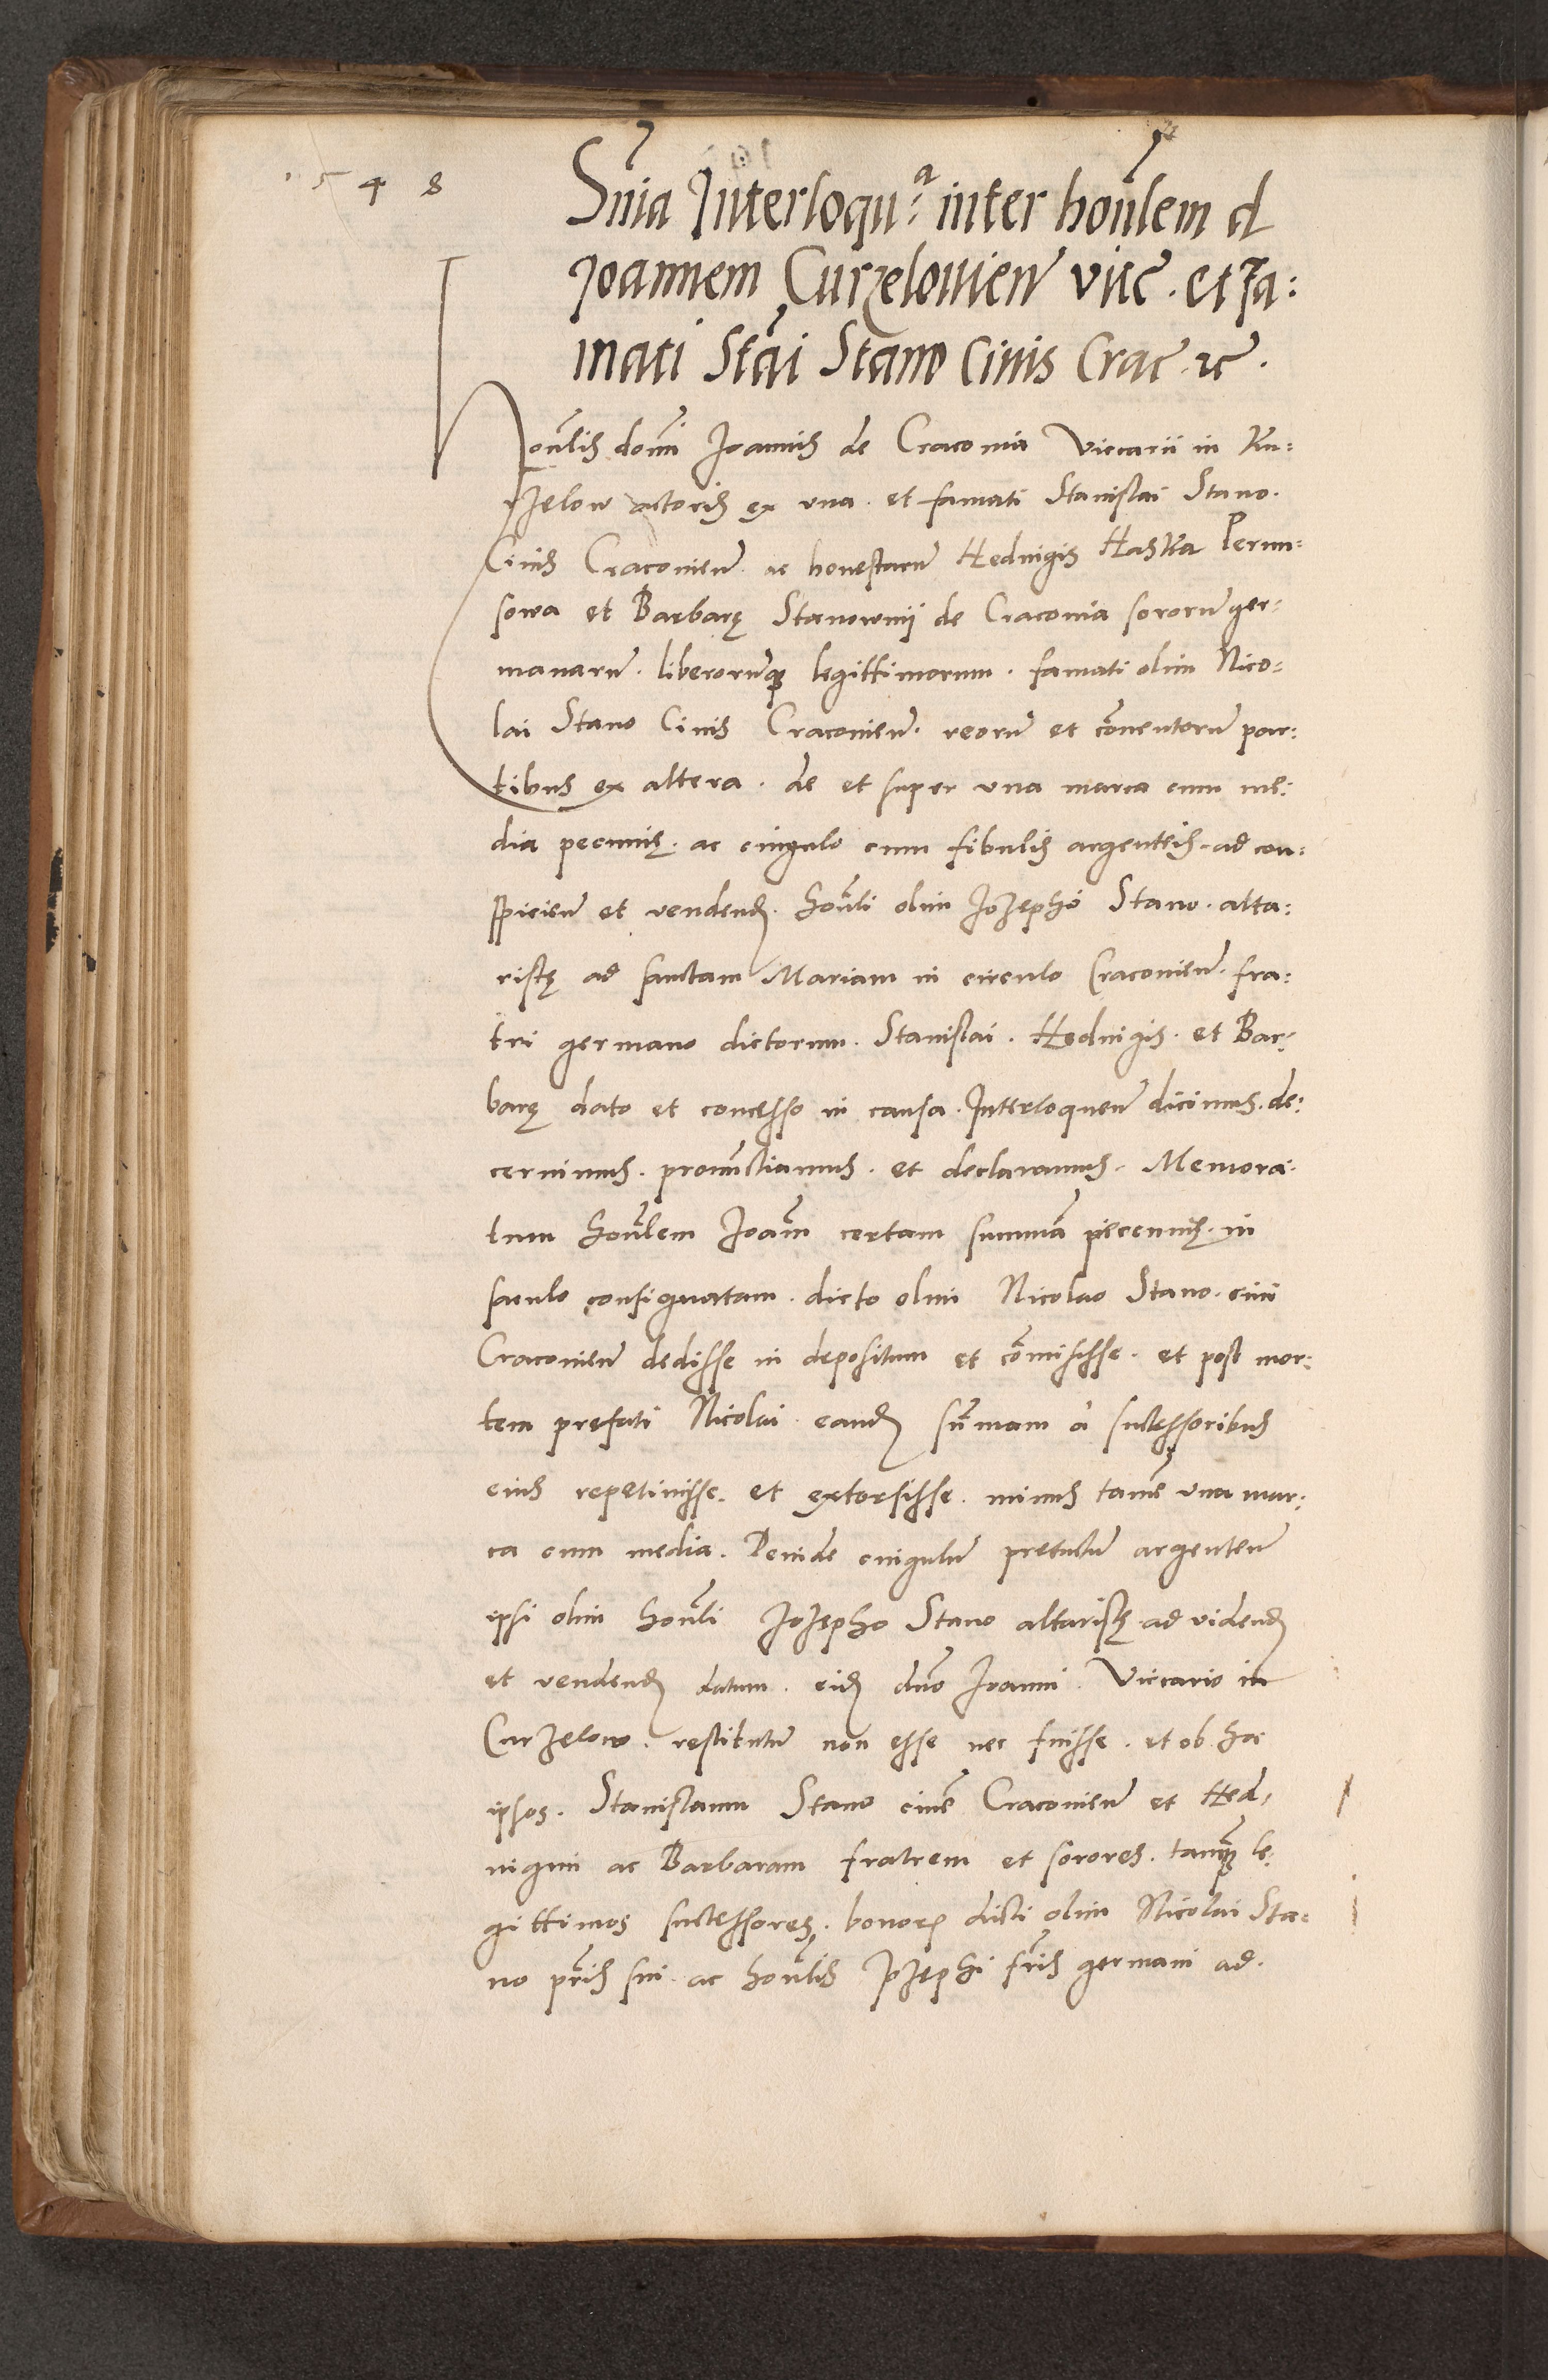 1548
Sn̄ia Interloqu:ᵃ inter hon̄lem d
Joannem Curzelovien̄ viic̄. et Fa:
mati Stāi Stano Civis Crac̄ ꝛc̄.
Hon̄lis domi Joannis de Craconia Viccarii in Kur:
zelow actoris ex una. et famati Stanislai Stano.
Civis Craconien̄. ac honestarū Hedvigis Haska
sowa et Barbarę Stanownij de Craconia sororū ger:
manarū. liberorūq legittimorum. famati olim Nico:
lai Stano Civis Craconien̄. reorū et cōventorū par:
tibus ex altera. de et super una marca cum me:
dia pecunię. ac cingulo cum fibulis argenteis. ad con:
spicien̄ et vendend. hon̄li olim Jozepho Stano. alta:
ristę ad sanctam Mariam in circulo Craconien̄. fra:
tri germano dictorum. Stanislai. Hedvigis. et Bar:
barę dato et concesso in causa. Interloquen̄ dicimus. de:
cernimus. pronūctiamus. et declaramus. Memora:
tum hon̄lem Joān̄ certam summā pecunię. in
saculo consignatam. dicto olim Nicolao Stano. civi
Craconien̄ dedisse in depositum et cōmisisse. et post mor:
tem prefati Nicolai eand sūmam à suctessoribus
eius repetivisse. et extorsisse. minus tamē una mar:
ca cum media. Deinde cingulū pretactū argenteū
ipsi olim hon̄li Jozepho Stano altaristę ad vidend
et vendend datum. eid dn̄o Joanni. Viccario in
Curzelow. restitutū non esse nec fuisse. et ob hoc
ipsos. Stanislaum Stano civē Craconien̄ et Hed:
vigim ac Barbaram fratrem et sorores. tanq̄ le:
gittimos suctessores. bonorꝝ dicti olim Nicolai Sta:
no pr̄is sui ac hon̄lis Jozephi fr̄is germani ad.